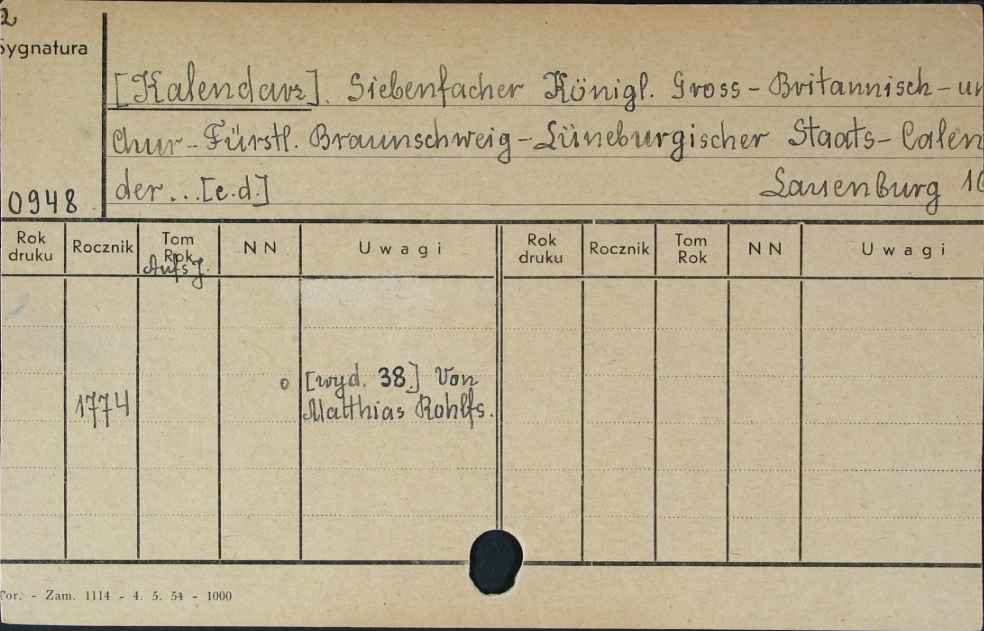 2
Sygnatura
[Kalendarz]. Siebenfacher Königl. Gross-Britannisch-un
Chur-Fürstl. Braunschweig-Lüneburgischer Staats-Calen
der...[e.d.] Lauenburg 16
0948
Rok druku Rocznik Tom Rok NN Uwagi Rok druku Rocznik Tom Rok NN Uwagi
o [wyd. 38.] Von
1774 Matthias Rohlfs.
Tor. - Zam. 1114 - 4. 5. 54 - 1000